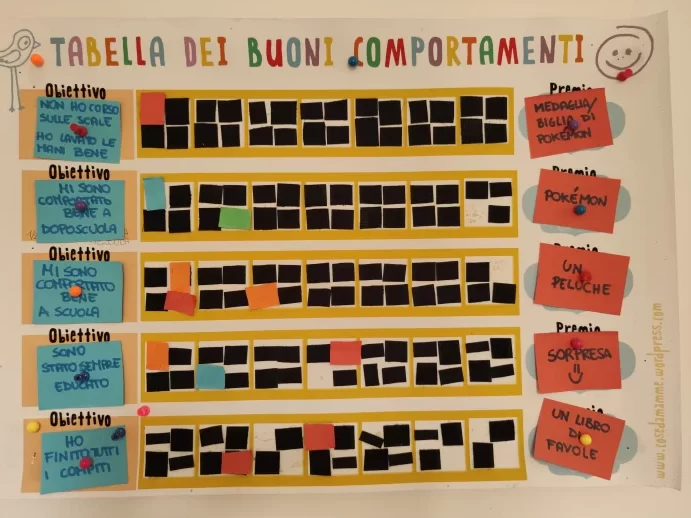 TABELLA DEI BUONI COMPORTAMENTI
Obiettivo
NON HO CORSO
SULLE SCALE
HO LAVATO LE
MANI BENE
Premio
MEDAGLIA/
BIGLIA DI
POKÉMON
Obiettivo
MI SONO
COMPORTATO
BENE A
DOPOSCUOLA
Premio
POKÉMON
Obiettivo
MI SONO
COMPORTATO
BENE
A SCUOLA
Premio
UN
PELUCHE
Obiettivo
SONO
STATO SEMPRE
EDUCATO
Premio
SORPRESA
Obiettivo
HO
FINITO TUTTI
I COMPITI
UN LIBRO
DI
FAVOLE
www.cosedamamme.wordpress.com